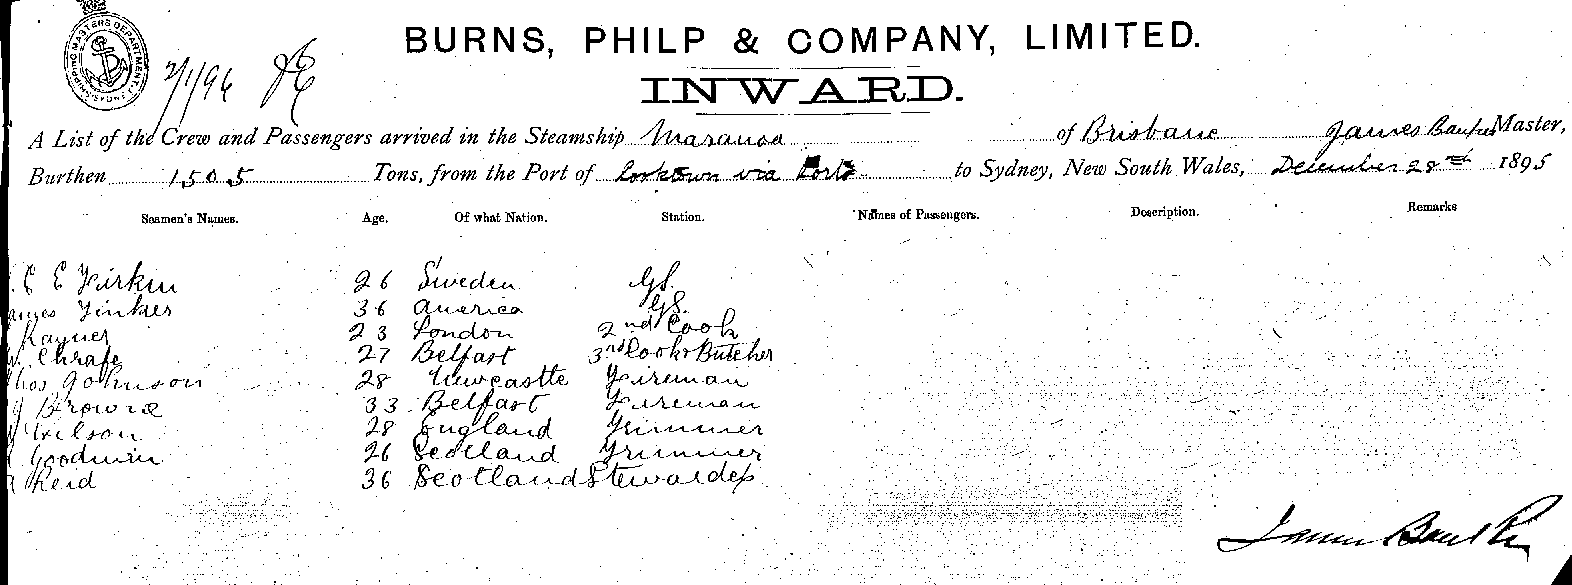 SHIPPING MASTERS DEPARTMENT
2/1/96
BURNS, PHILP & COMPANY, LIMITED.
INWARD.
A List of the Crew and Passengers arrived in the Steamship Maranoa of Brisbane James Master,
Burthen 1505 Tons, from the Port of Cooktown via Ports to Sydney, New South Wales, December 28th 1895
Seamen's Names. Age. Of what Nation. Station. Names of Passengers. Description. Remarks
C E Firkin 26 Sweden GS.
James Tinker 36 America GS.
Rayner 23 London 2nd Cook
27 Belfast 3rd Cook & Butcher
Thos Johnson 28 Newcastle Fireman
J Browne 33 Belfast Fireman
Wilson 28 England Trimmer
Goodwin 26 Scotland Trimmer
Reid 36 Scotland Stewardess
James